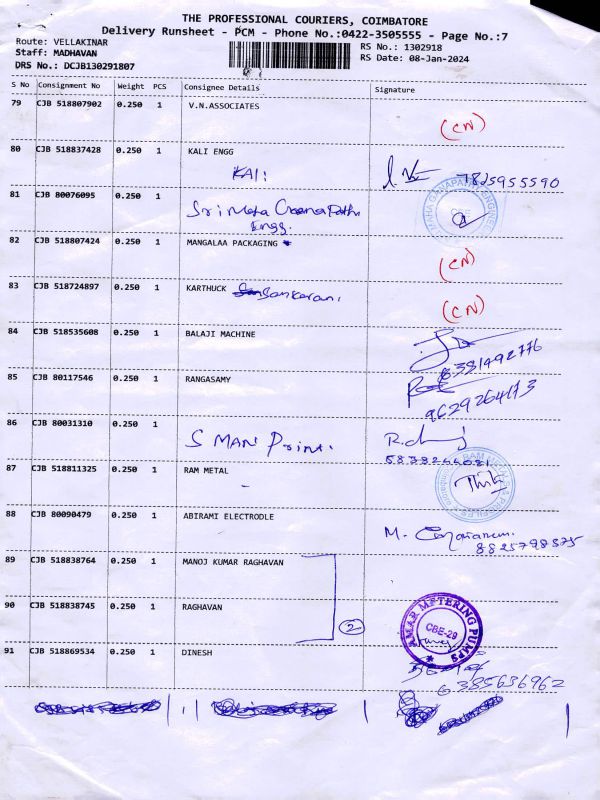 THE PROFESSIONAL COURIERS, COIMBATORE
Delivery Runsheet - PCM - Phone No.:0422-3505555 - Page No.:7
Route: VELLAKINAR
RS No.: 1302918
Staff: MADHAVAN
RS Date: 08-Jan-2024
DRS No.: DCJB130291807
S No Consignment No Weight PCS Consignee Details Signature
79 CJB 518807902 0.250 1 V.N.ASSOCIATES (CN)
80 CJB 518837428 0.250 1 KALI ENGG
KAli 7825955590
81 CJB 80076095 0.250 1
Sri Maha Engg.
82 CJB 518807424 0.250 1 MANGALAA PACKAGING (CN)
83 CJB 518724897 0.250 1 KARTHUCK Sankarani (CN)
84 CJB 518535608 0.250 1 BALAJI MACHINE
6381492776
85 CJB 80117546 0.250 1 RANGASAMY
9629264113
86 CJB 80031310 0.250 1
S MAN Print.
87 CJB 518811325 0.250 1 RAM METAL
88 CJB 80090479 0.250 1 ABIRAMI ELECTRODLE
M.
8825798575
89 CJB 518838764 0.250 1 MANOJ KUMAR RAGHAVAN
90 CJB 518838745 0.250 1 RAGHAVAN
2
AMAR METERING PUMPS
CBE-29
91 CJB 518869534 0.250 1 DINESH
6385636962